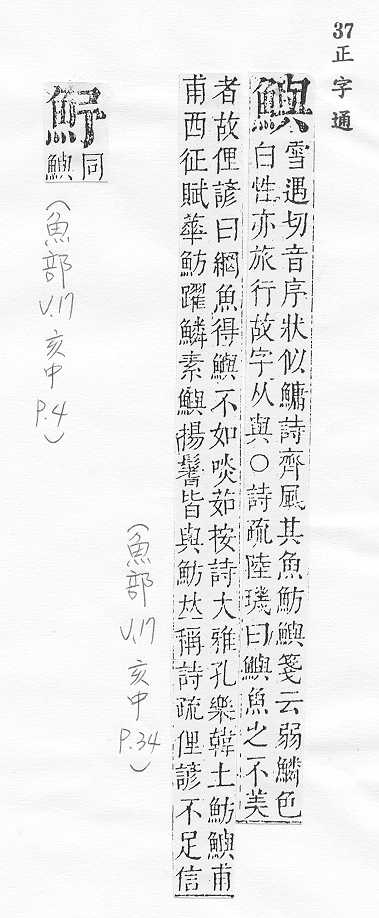 37正字通
鱮
雪遇切音序狀似鱅詩齊風其魚魴鱮箋云弱鱗色
白性亦旅行故字从與○詩疏陸璣曰鱮魚之不美
者故俚諺曰網魚得鱮不如啖茹按詩大雅孔樂韓土魴鱮甫
甫西征賦華魴躍鱗素鱮揚鬐皆與魴𠀤稱詩疏俚諺不足信
(魚部 V.17 亥中 P.34)
魣
同
鱮
(魚部 V.17 亥中 P.4)